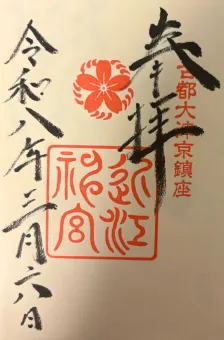 奉拝
古都大津京鎮座
近江
神宮
令和八年三月六日